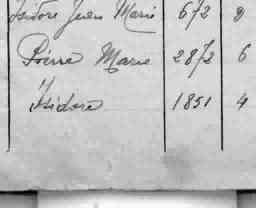 Isidore Jean Marie 672 2
Pierre Marie 2872 6
Isidore 1851 4